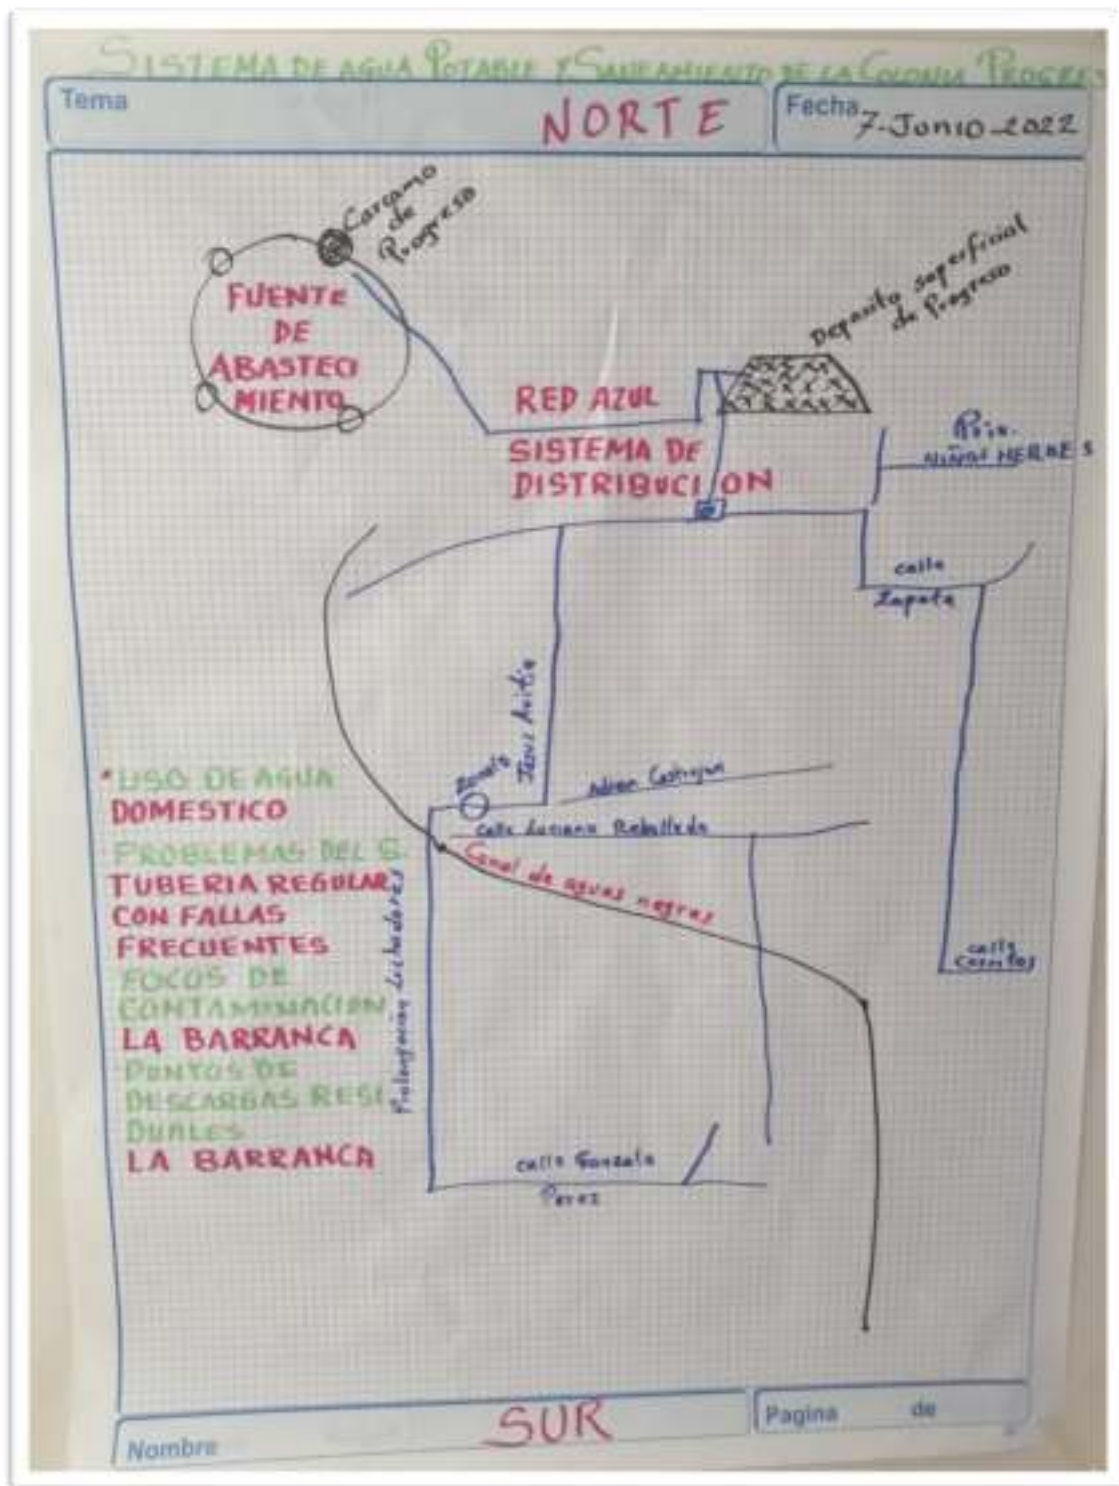 SISTEMA DE AGUA POTABLE Y SANEAMIENTO DE LA COLONIA PROGRES
Tema
NORTE
Fecha
7-Junio-2022
Carcamo
de
Progreso
FUENTE
DE
ABASTECI
MIENTO
Deposito superficial
de Progreso
RED AZUL
SISTEMA DE
DISTRIBUCION
NIÑOS HEROES
calle
Zapata
Jesus Avitia
Adrian Castrejon
Calle Luciano Reballedo
Canal de aguas negras
Prolongacion Luchadores
*USO DE AGUA
DOMESTICO
PROBLEMAS DEL
TUBERIA REGULAR
CON FALLAS
FRECUENTES
FOCOS DE
CONTAMINACION
LA BARRANCA
PUNTOS DE
DESCARGAS RESI
DUALES
LA BARRANCA
calle
calle Gonzalo
Perez
SUR
Nombre
Pagina de